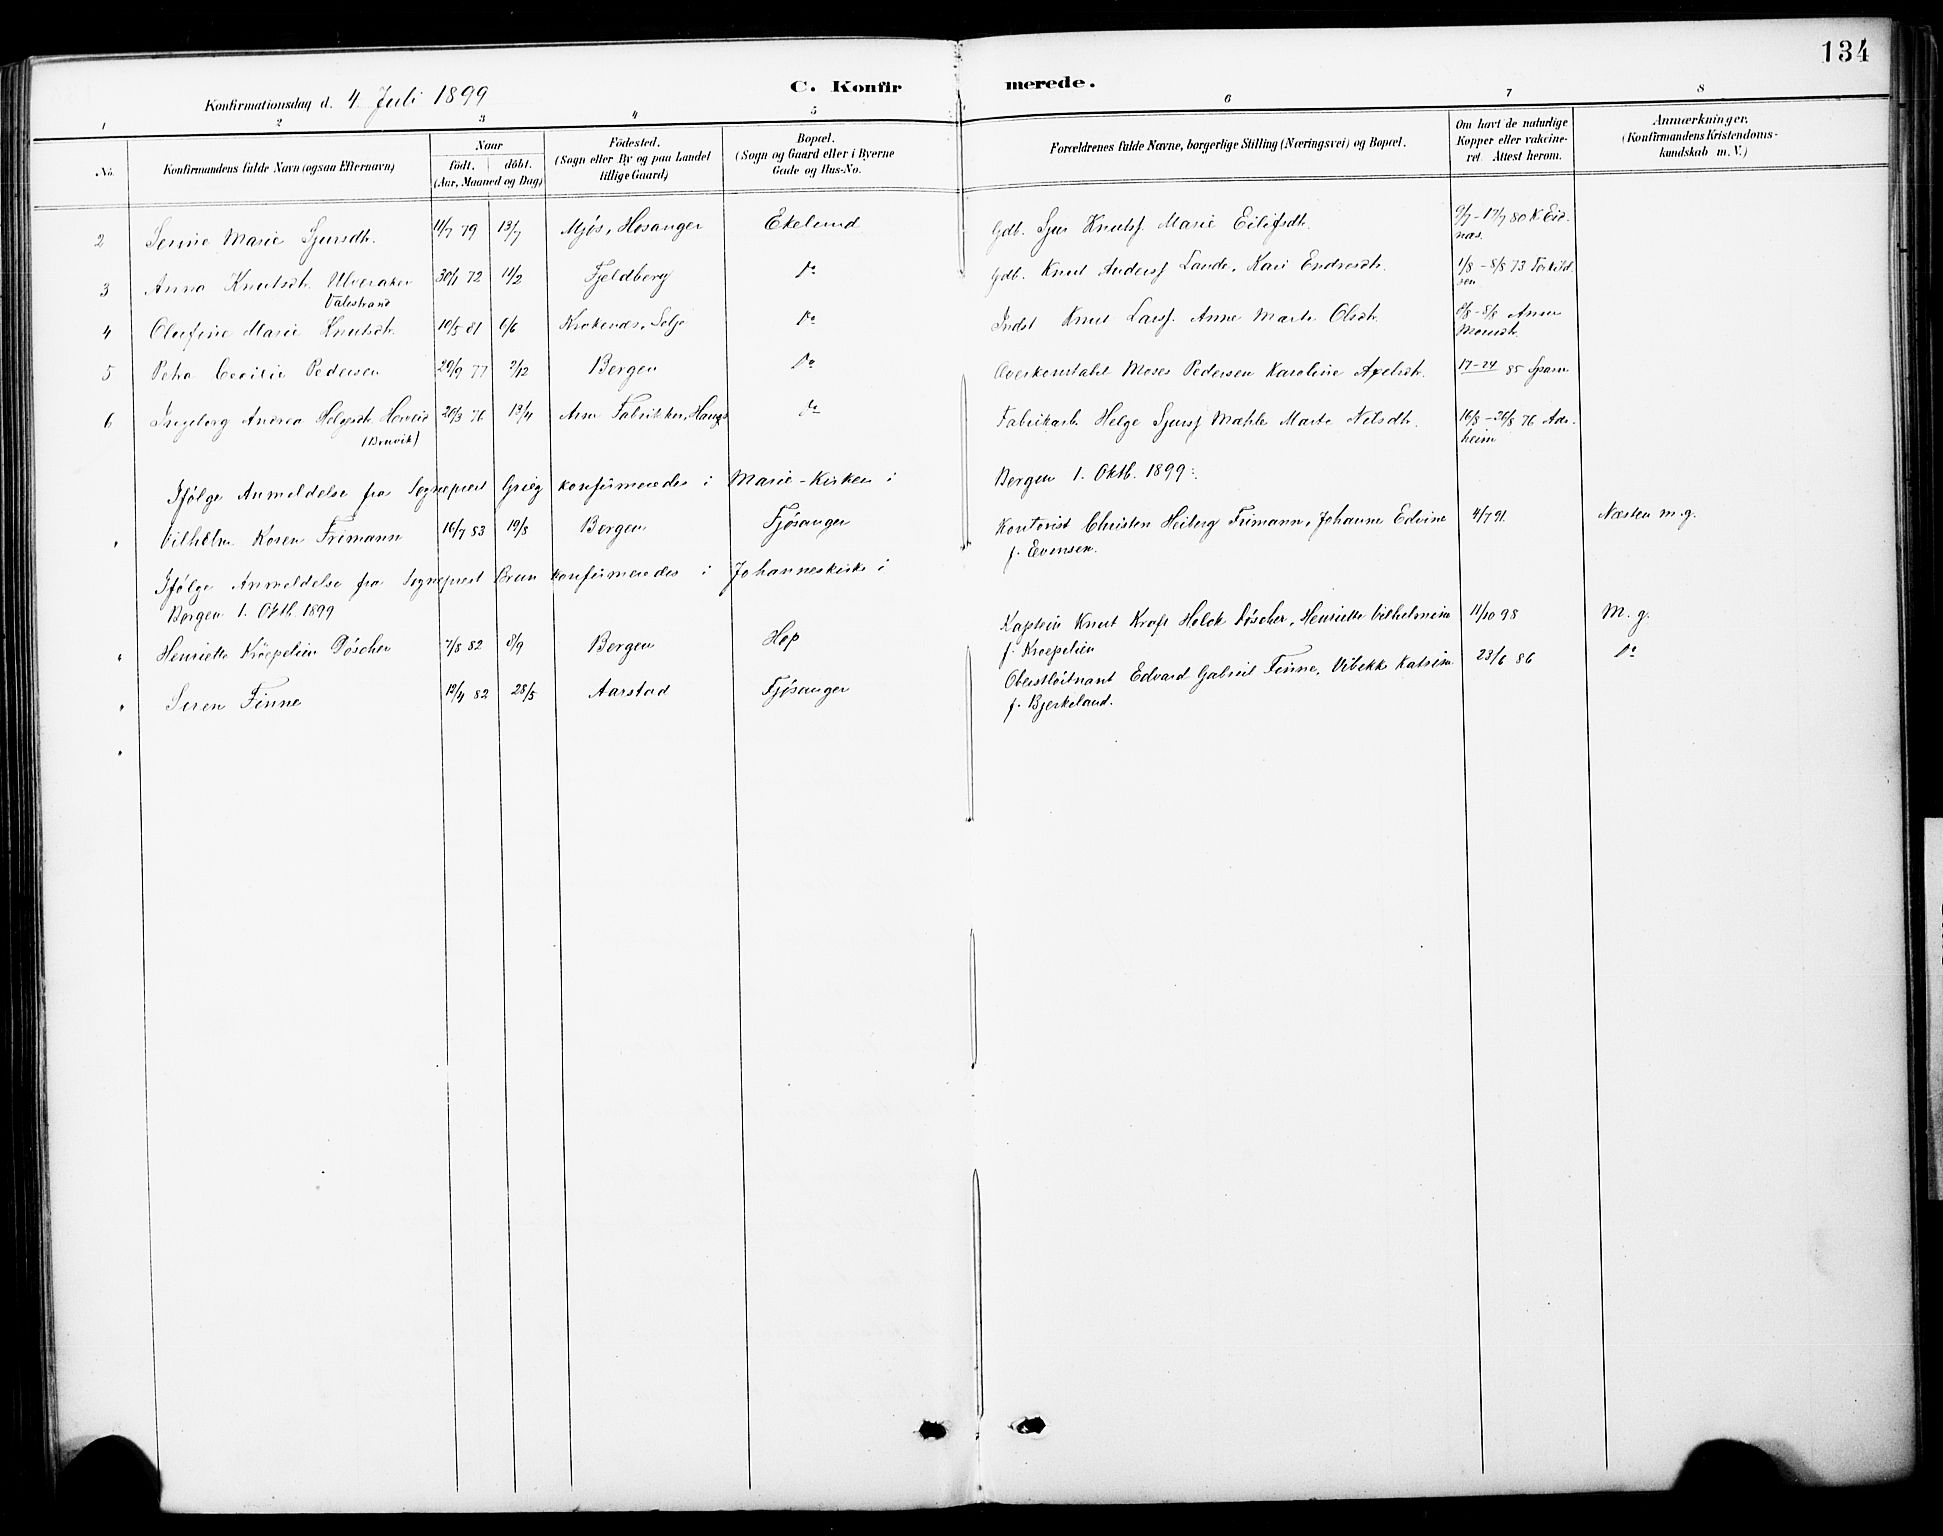 134
C. Konfirmerede.
Konfirmationsdag d. 4 Juli 1899
1 2 3 4 5 6 7 8
No. Konfirmandens fulde Navn (ogsaa Efternavn) Naar födt. döbt. (Aar, Maaned og Dag) Födested. (Sogn eller By og paa Landet tillige Gaard) Bopæl. (Sogn og Gaard eller i Byerne Gade og Hus-No. Forældrenes fulde Navne, borgerlige Stilling (Næringsvei) og Bopæl. Om havt de naturlige Kopper eller vakcineret. Attest herom. Anmærkninger. (Konfirmandens Kristendomskundskab m. V.)
2 Serine Marie Sjursdtr. 11/7 79 13/7 Mjøs, Hosanger Ekelund Gdb. Sjur Knutsf Marie Eilifsdtr. 9/7 - 17/7 80 K Eidnæs.
3 Anna Knutsdtr. Ulveraker 30/1 72 11/2 Fjeldberg Do Gdb. Knut Andersf Lande, Kari Endresdtr. 1/8 - 8/8 73 Torkildsen
Valestrand
4 Olufine Marie Knutsdtr. 10/5 81 6/6 Krokenes, Selje Do Indst Knut Larsf. Anne Marte Olsdtr. 8/8 Anna Monsdtr.
5 Petra Cecilie Pedersen 29/9 77 2/12 Bergen Do Overkonstabel Moses Pedersen Karoline Axelsdtr. 17-24 85 Sparre
6 Ingeborg Andrea Helgesdtr 20/3 76 13/4 Arne Fabrikker, Haugs do Fabrikarb. Helge Sjursf Mæhle Marte Nelsdtr. 16/8 - 26/8 76 Aarheim
(Bruvik)
Ifølge Anmeldelse fra Sognepræst Grieg konfirmeredes i Marie-Kirken i Bergen 1. Oktb. 1899:
" Vilhelm Koren Frimann 16/7 83 19/8 Bergen Fjøsanger Kontorist Christen Heiberg Frimann, Johanne Edvine 4/7 91. Næsten m.g.
f. Evensen.
Ifølge Anmeldelse fra Sognepræst Brun konfirmeredes i Johanneskirke i
Bergen 1. Oktb. 1899
" Henriette Kröepelien Döscher 7/8 82 8/9 Bergen Hop Kaptein Knut Kraft Holck Döscher, Henriette Vilhelmine 11/10 98 M. g.
f. Kroepelien
" Søren Finne 12/4 82 28/5 Aarstad Fjøsanger Oberstløitnant Edvard Gabriel Finne, Vibekke Katrine 23/6 86 Do
f. Bjerkeland.
"